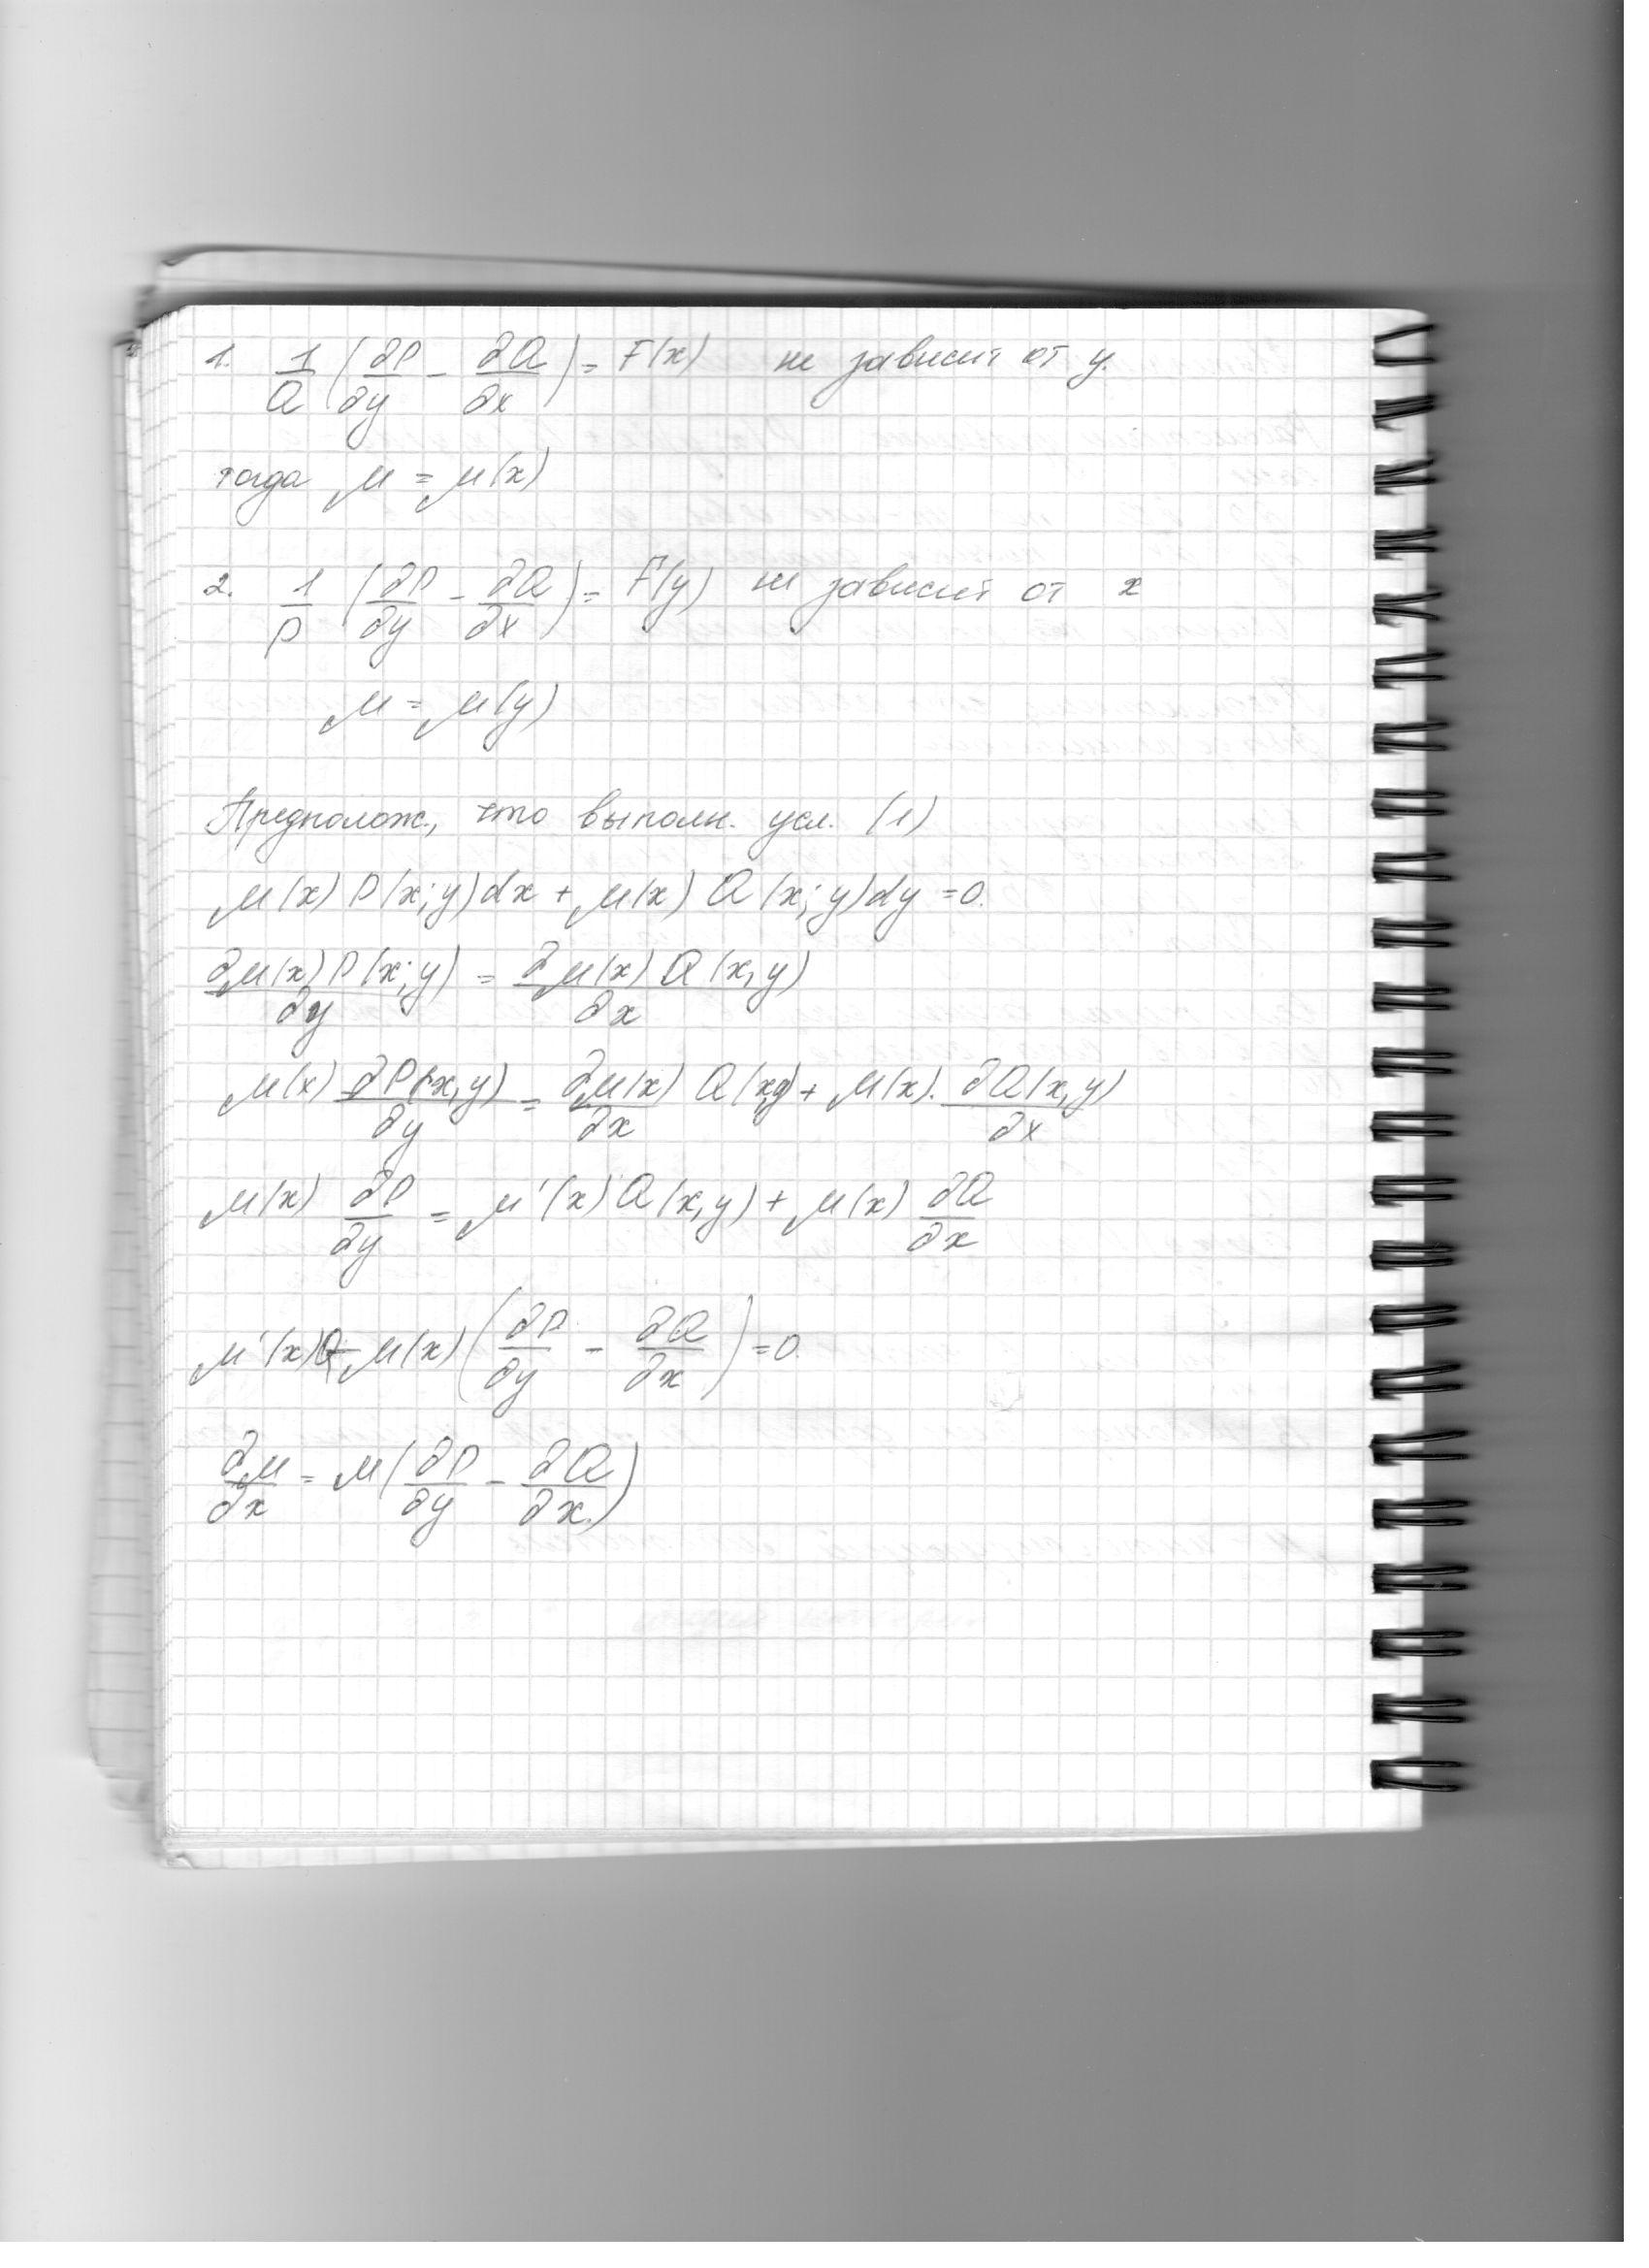 1. 1/Q (∂P/∂y - ∂Q/∂x) = F(x) не зависит от y.
тогда μ = μ(x)
2. 1/P (∂P/∂y - ∂Q/∂x) = F(y) не зависит от x
μ = μ(y)
Предполож., что выполн. усл. (1)
μ(x) P(x;y)dx + μ(x) Q(x;y)dy = 0.
∂μ(x)P(x;y)/∂y = ∂μ(x)Q(x,y)/∂x
μ(x) ∂P(x,y)/∂y = ∂μ(x)/∂x Q(x,y) + μ(x)·∂Q(x,y)/∂x
μ(x) ∂P/∂y = μ'(x)Q(x,y) + μ(x) ∂Q/∂x
μ'(x)Q - μ(x)(∂P/∂y - ∂Q/∂x) = 0
∂μ/∂x = μ(∂P/∂y - ∂Q/∂x)